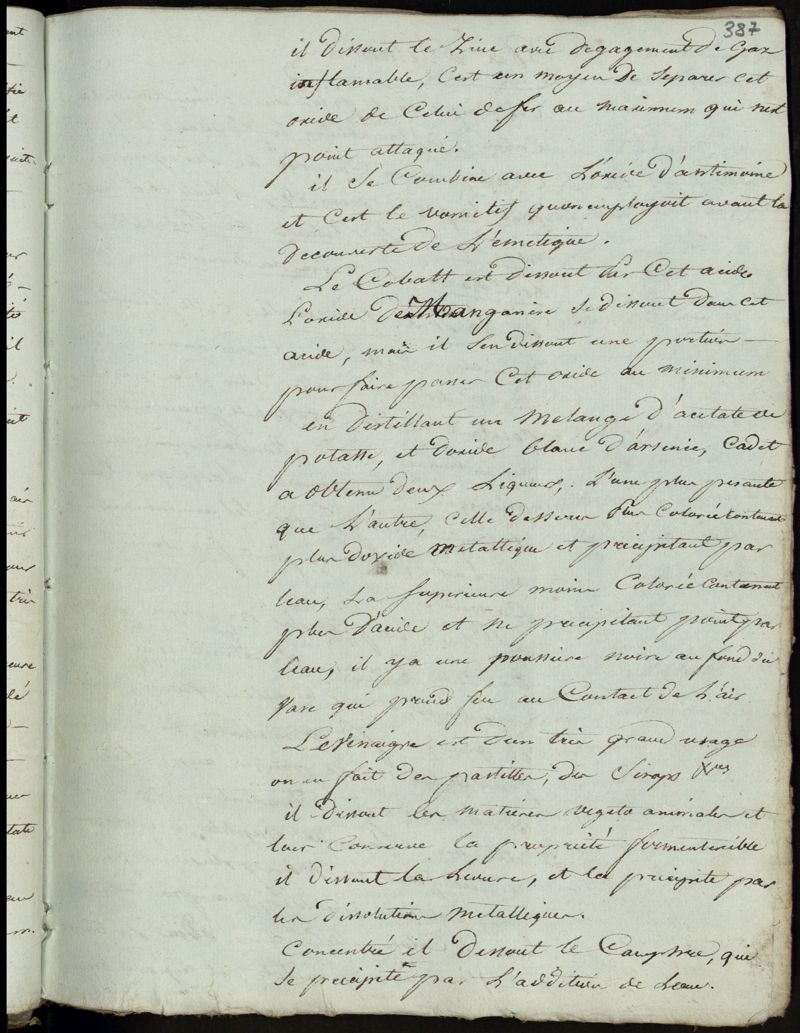 387
il dissout le Zinc avec degagement de Gaz
inflamable, C'est un moyen de separer cet
oxide de Celui de fer au maximum qui nest
point attaqué.
il se Combine avec L'oxide d'antimoine
et C'est le vomitif quon employoit avant la
Decouverte de L'emetique.
Le Cobalt est dissout par Cet acide
L'oxide de Manganèse se dissout dans cet
acide, mais il sen dissout une portion —
pour faire passer Cet oxide au minimum
en Distillant un Melange d'acetate de
potasse, et doxide blanc d'arsenic, Cadet
a obtenu deux Liqueurs, L'une plus pesante
que L'autre, celle dessous plus Colorée Contenant
plus doxide Metallique et precipitant par
leau, La Superieure moins Colorée Contenant
plus D'acide et ne precipitant point par
leau, il ya une poussiere noire au fond du
Vase qui prend feu au Contact de L'air
Le Vinaigre est d'un très grand usage
on en fait des pastilles, des Sirops
il dissout les matieres vegeto animales et
leur Conserve la propriété fermentescible
il dissout la Levure, et la precipite par
les dissolutions Metalliques.
Concentré il Dissout le Camphre, qui
se precipite par L'addition de Leau.